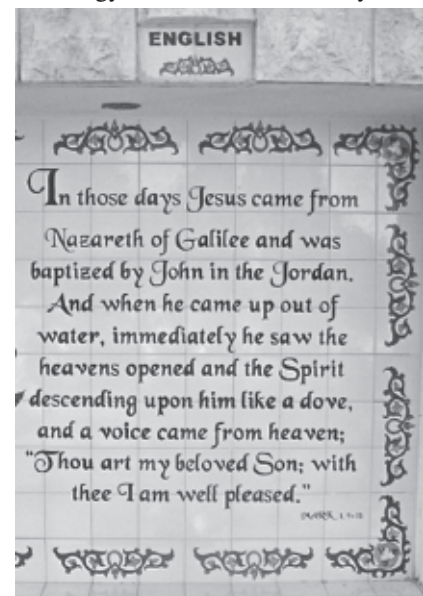 ENGLISH
In those days Jesus came from
Nazareth of Galilee and was
baptized by John in the Jordan.
And when he came up out of
water, immediately he saw the
heavens opened and the Spirit
descending upon him like a dove,
and a voice came from heaven;
"Thou art my beloved Son; with
thee I am well pleased."